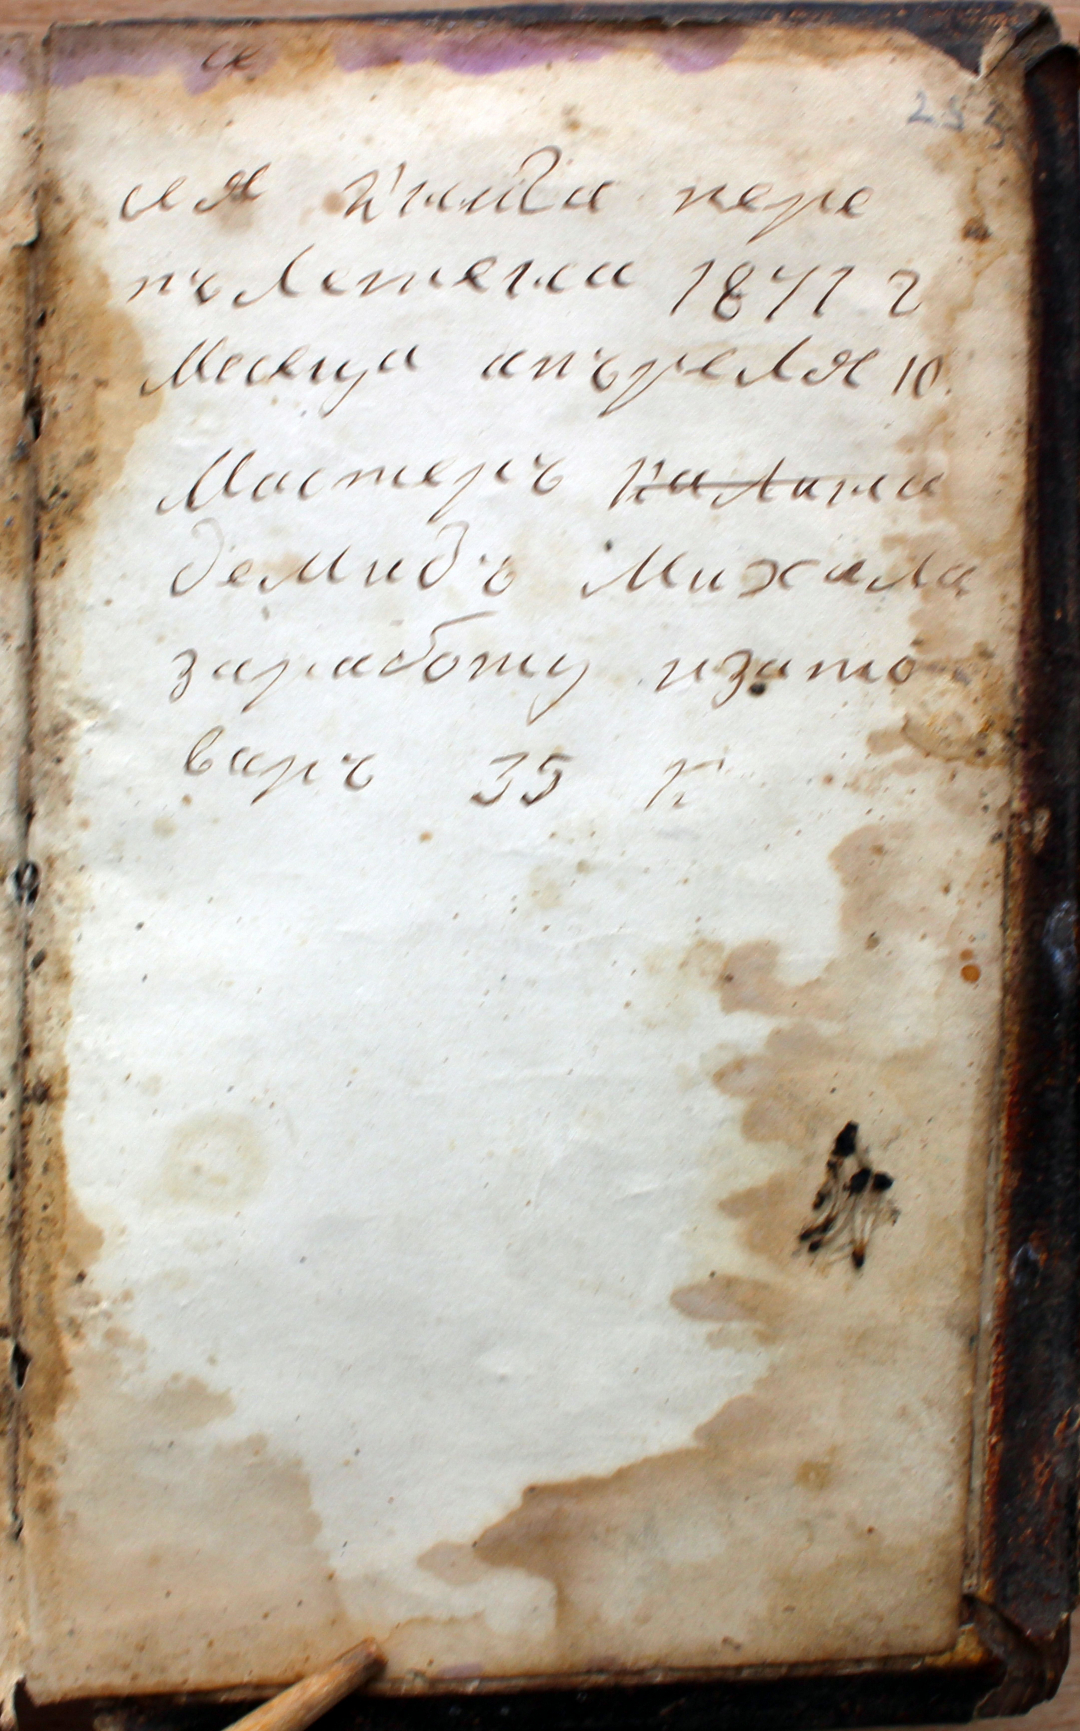 се
253
сия кънига пере
пълетена 1871 г
Месяца апъреля 10
Мастеръ Калина
демидъ Михала
заработу изато
варъ 35 к